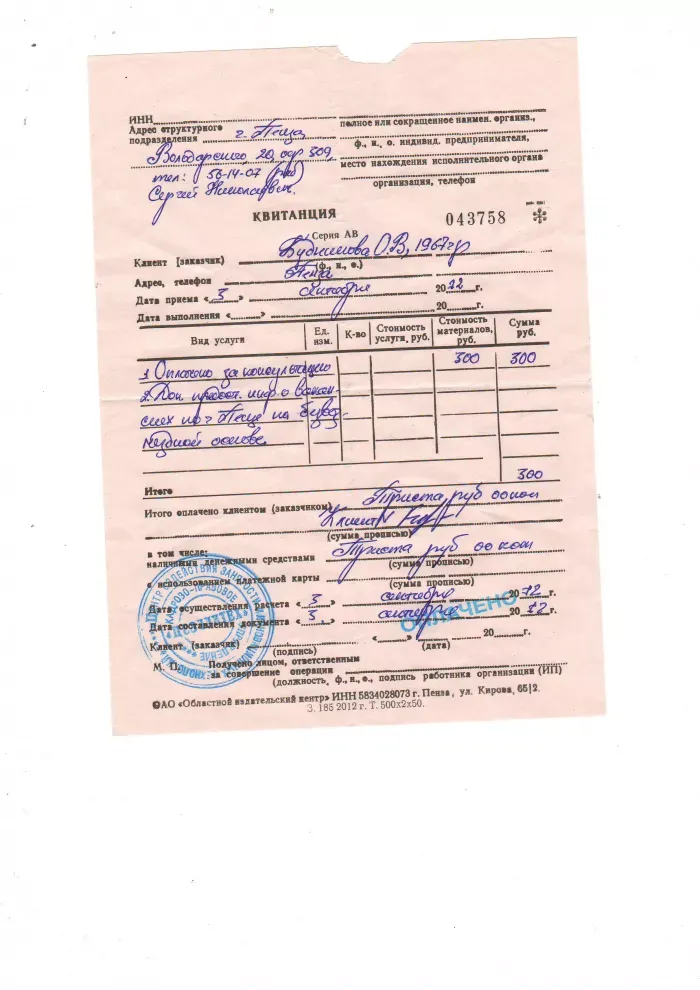 ИНН
Адрес структурного
подразделения г. Пенза,
Володарского, 20, оф 309,
тел: 56-14-07
Сергей Николаевич.
полное или сокращенное наимен. организ.,
ф., и., о. индивид. предпринимателя,
место нахождения исполнительного органа
организация, телефон
КВИТАНЦИЯ 043758 *
Серия АВ
Клиент [заказчик] О.В, 1967гр
(ф., и., о.)
Адрес, телефон Пенза
Дата приема « 3 » сентября 20 12 г.
Дата выполнения « » 20 г.
Вид услуги Ед. изм. К-во Стоимость услуги, руб. Стоимость материалов, руб. Сумма руб.
1 Оплачено за консультацию 300 300
2. Доп. предост. инф о вакан-
сиях по г Пенze на безвоз-
мездной основе.
300
Итого
Итого оплачено клиентом (заказчиком) Триста руб 00 коп
(сумма прописью)
в том числе:
наличными денежными средствами Триста руб 00 коп
(сумма прописью)
с использованием платежной карты
(сумма прописью)
Дата осуществления расчета « 3 » сентября 20 12 г.
Дата составления документа « 3 » сентября 20 12 г.
ОПЛАЧЕНО
Клиент (заказчик) « » 20 г.
(подпись) (дата)
М. П. Получено лицом, ответственным
за совершение операции
(должность, ф., и., о., подпись работника организации (ИП)
©АО «Областной издательский центр» ИНН 5834028073 г. Пенза, ул. Кирова, 65|2.
З. 185 2012 г. Т. 500х2х50.